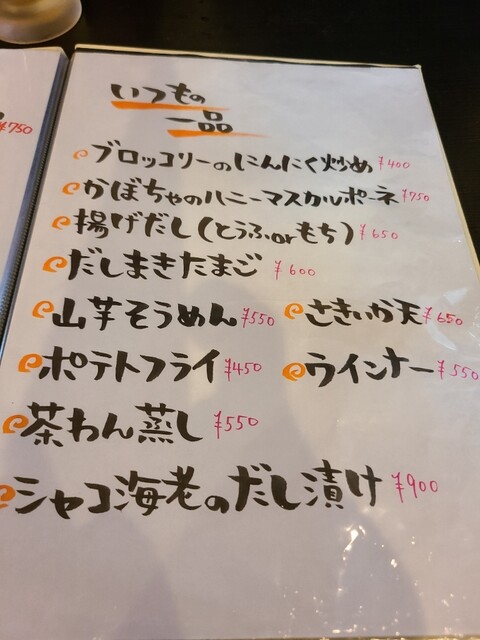 ¥750
いつもの
一品
ブロッコリーのにんにく炒め ¥400
かぼちゃのハニーマスカルポーネ ¥750
揚げだし(とうふorもち) ¥650
だしまきたまご ¥600
山芋そうめん ¥550 さきいか天 ¥650
ポテトフライ ¥450 ウインナー ¥550
茶わん蒸し ¥550
シャコ海老のだし漬け ¥900